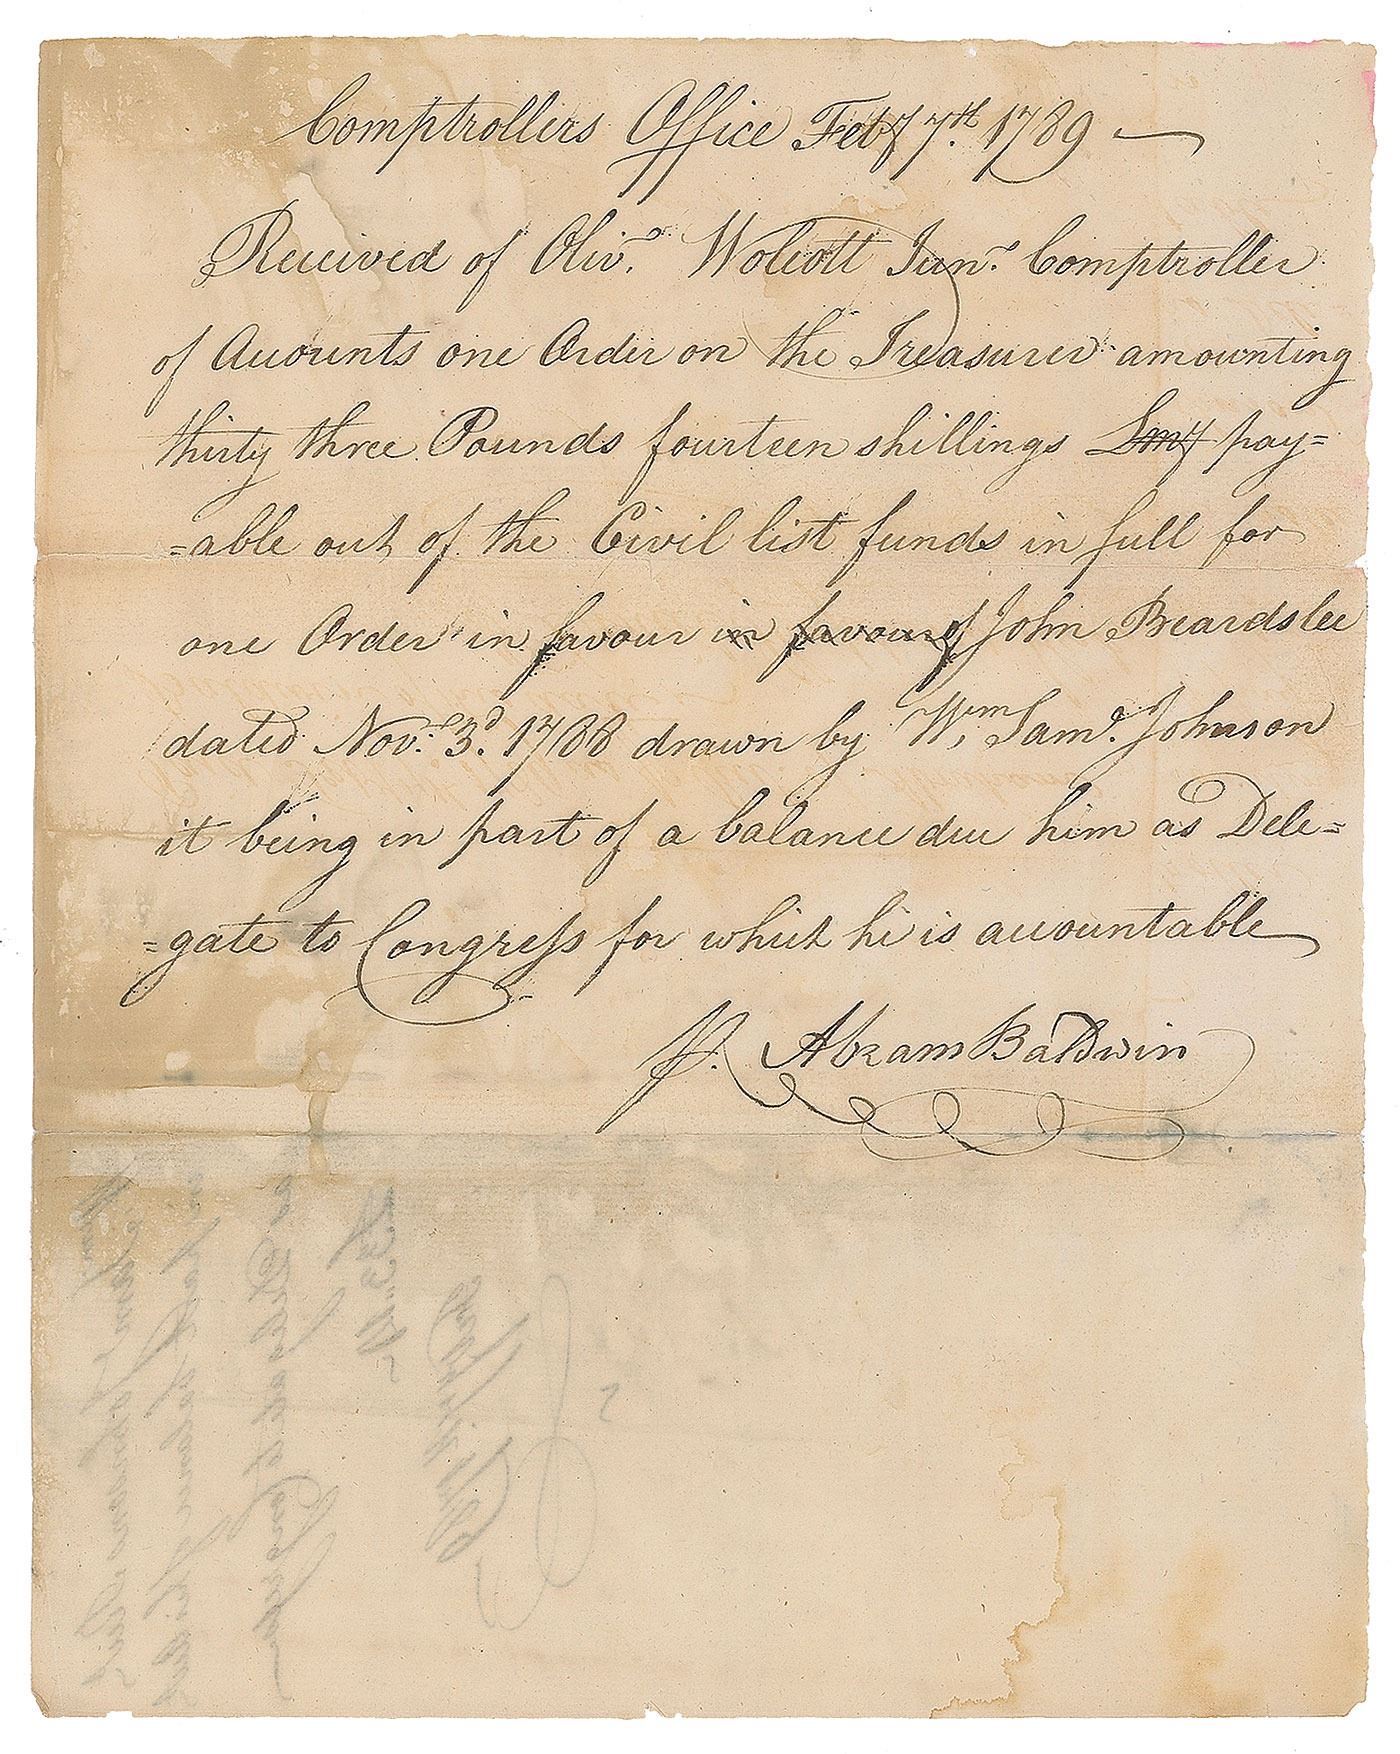 Comptrollers Office Feby 7th. 1789
Received of Olivr. Wolcott Junr. Comptroller
of Accounts one Order on the Treasurer amounting
thirty three Pounds fourteen shillings Lmy pay=
=able out of the Civil list funds in full for
one Order in favour in favour of John Beardslee
dated Novr. 3d. 1788 drawn by Wm. Saml. Johnson
it being in part of a balance due him as Dele=
=gate to Congress for which he is accountable
Pr. Abram Baldwin